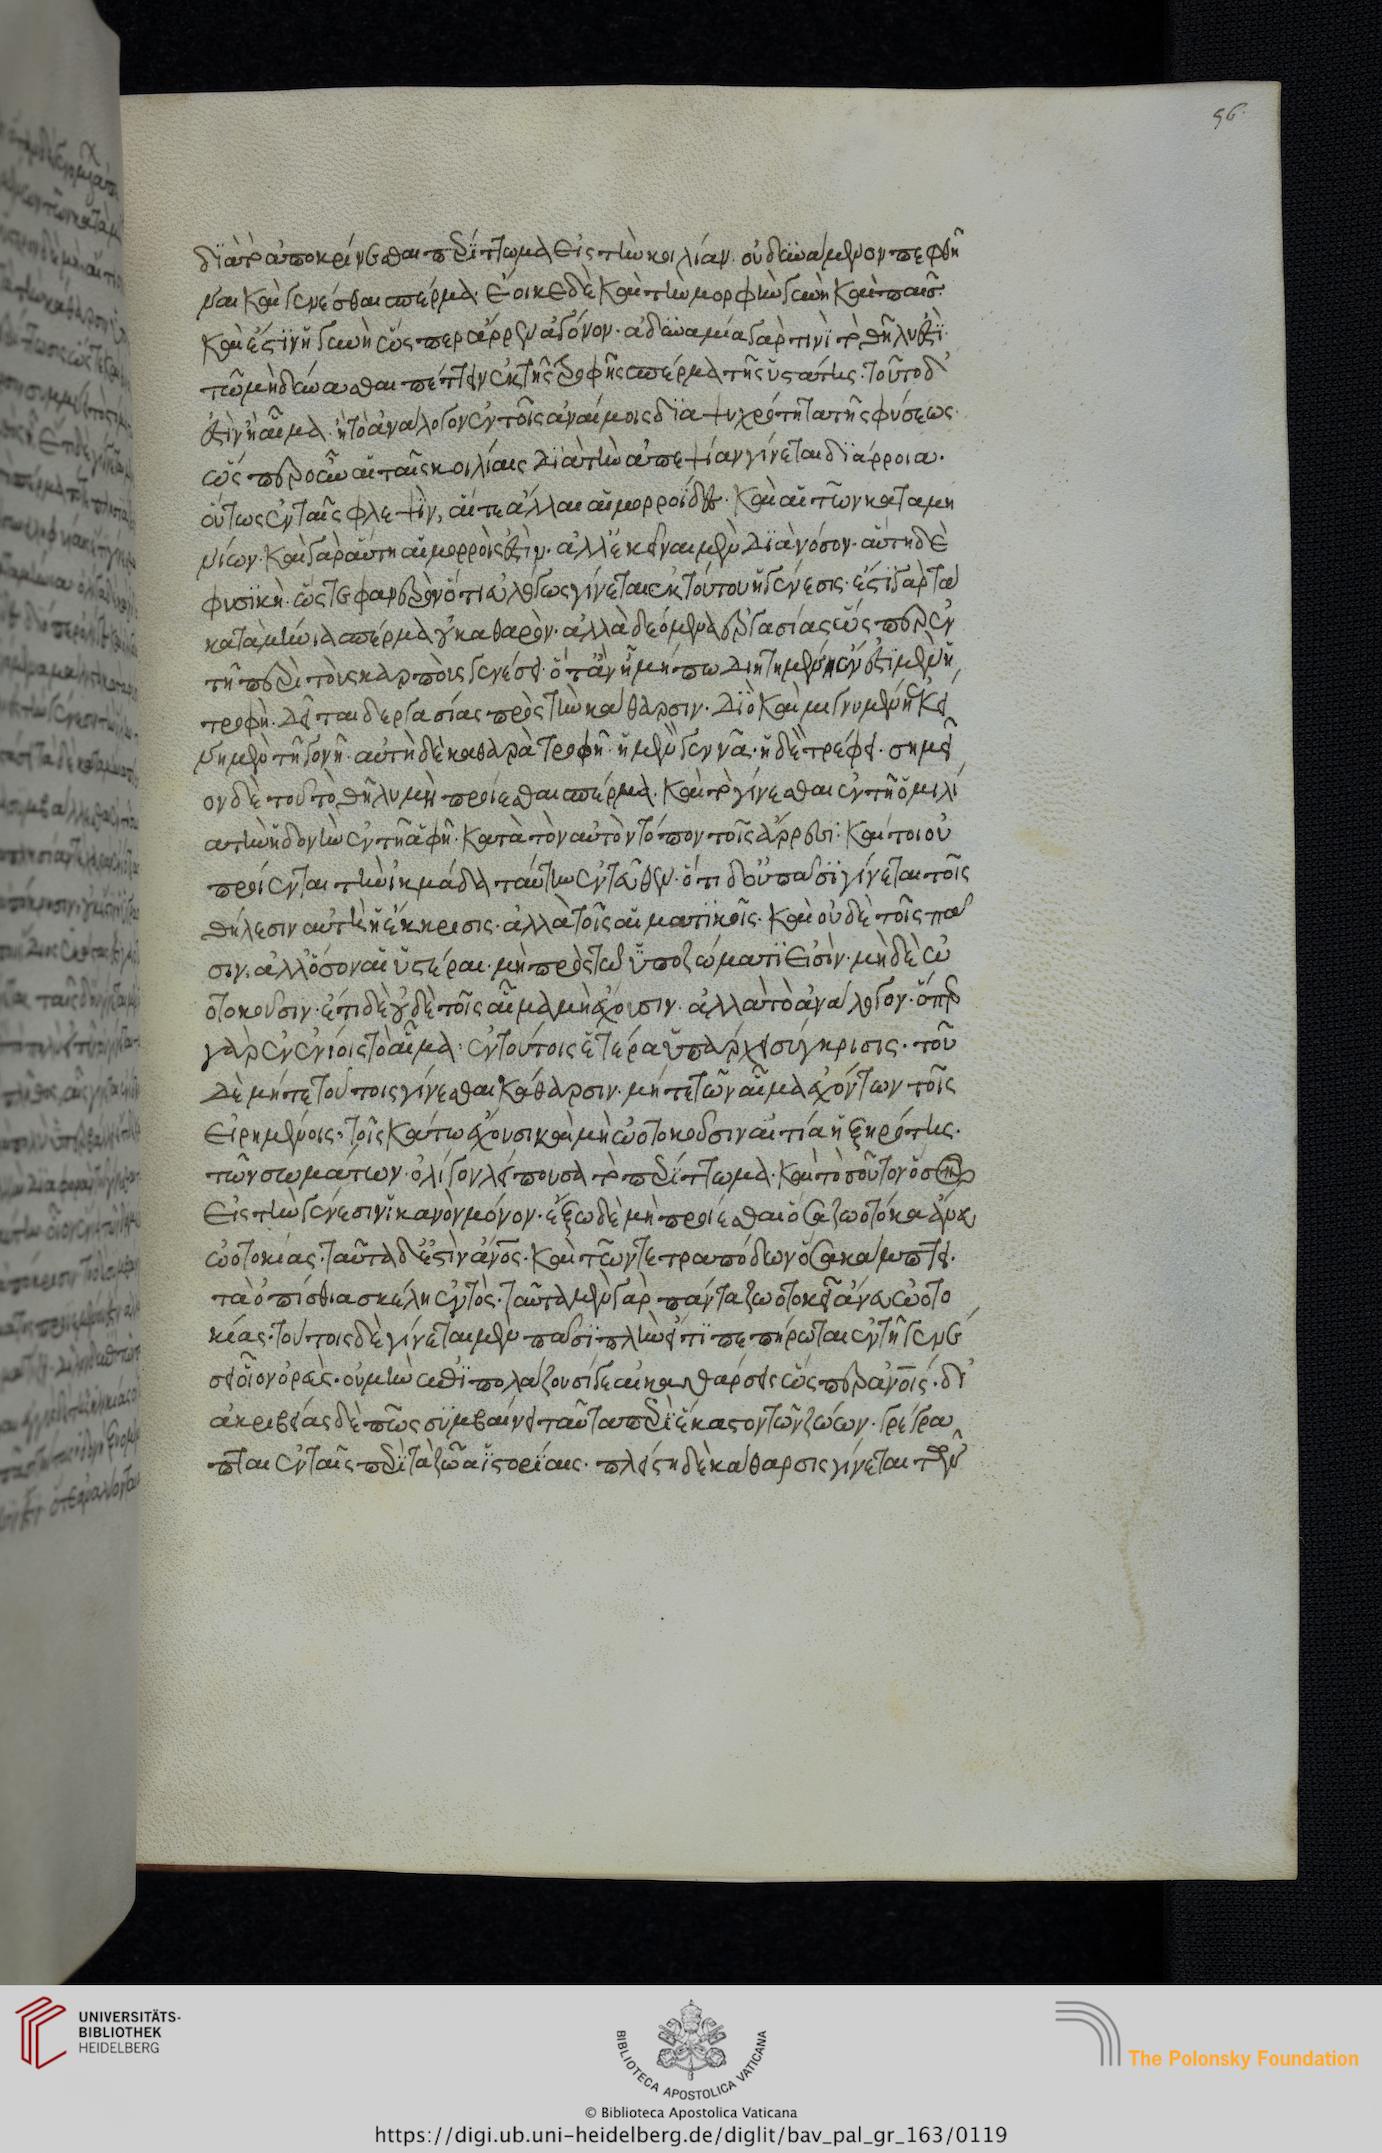 56
διὰ τὸ ἀποκρίνεσθαι περίττωμα εἰς τὴν κοιλίαν. οὐ δυνάμενον πεφθῆ
ναι καὶ γενέσθαι σπέρμα. ἔοικε δὲ καὶ τὴν μορφὴν γυνὴ καὶ παῖς.
καὶ ἔστιν ἡ γυνὴ ὥσπερ ἄρρεν ἄγονον. ἀδυναμία γὰρ τινὶ τὸ θῆλυ ἐστὶ
τῶ μὴ δύνασθαι πέττειν ἐκ τῆς τροφῆς σπέρμα τῆς ὑστάτης. τοῦτο δ'
ἐστὶν ἢ αἷμα. ἢ τὸ ἀνάλογον ἐν τοῖς ἀναίμοις διὰ ψυχρότητα τῆς φύσεως.
ὥσπερ οὖν ἐν ταῖς κοιλίαις διὰ τὴν ἀπεψίαν γίνεται διάρροια.
οὕτως ἐν ταῖς φλεψὶν, αἵ τε ἄλλαι αἱμορροΐδες. καὶ αἱ τῶν καταμη
νίων. καὶ γὰρ αὕτη αἱμορροΐς ἐστιν. ἀλλ' ἐκεῖναι μὲν διὰ νόσον. αὕτη δὲ
φυσική. ὥστε φανερὸν ὅτι εὐλόγως γίνεται ἐκ τούτου ἡ γένεσις. ἔστι γὰρ τὰ
καταμήνια σπέρμα οὐ καθαρὸν. ἀλλὰ δεόμενον ἐργασίας ὥσπερ ἐν
τῆ περὶ τοὺς καρποὺς γενέσει. ὅταν ἦ μήπω διητημένη ἔνεστι μὲν ἡ
τροφὴ. δεῖται δ' ἐργασίας πρὸς τὴν κάθαρσιν. διὸ καὶ μιγνυμένη ἐκεί
νη μὲν τῆ γονῆ. αὕτη δὲ καθαρᾶ τροφῆ. ἡ μὲν γεννᾶ. ἡ δὲ τρέφει. σημεῖ
ον δὲ τοῦ τὸ θῆλυ μὴ προΐεσθαι σπέρμα. καὶ τὸ γίνεσθαι ἐν τῆ ὁμιλί
α τὴν ἡδονὴν ἐν τῆ ἁφῆ. κατὰ τὸν αὐτὸν τόπον τοῖς ἄρρεσι. καίτοι οὐ
προΐενται τὴν ἰκμάδα ταύτην ἐντεῦθεν. ἔτι δ' οὐ πᾶσι γίνεται τοῖς
θήλεσιν αὕτη ἡ ἔκκρισις. ἀλλὰ τοῖς αἱματικοῖς. καὶ οὐδὲ τοῖς πᾶ
σιν. ἀλλ' ὅσων αἱ ὑστέραι. μὴ πρὸς τῶ ὑποζώματι εἰσὶν. μὴ δὲ ὠ
οτοκοῦσιν. ἔτι δὲ οὐδὲ τοῖς αἷμα μὴ ἔχουσιν. ἀλλὰ τὸ ἀνάλογον. ὅπερ
γὰρ ἐν ἐνίοις τὸ αἷμα. ἐν τούτοις ἑτέρα ὑπάρχει σύγκρισις. τοῦ
δὲ μήτε τούτοις γίνεσθαι κάθαρσιν. μήτε τῶν αἷμα ἐχόντων τοῖς
εἰρημένοις. τοῖς κάτω ἔχουσι καὶ μὴ ὠοτοκοῦσιν αἰτία ἡ ξηρότης.
τῶν σωμάτων. ὀλίγον λείπουσα τὸ περίττωμα. καὶ τοσοῦτον ὅσον
εἰς τὴν γένεσιν ἱκανὸν μόνον. ἔξω δὲ μὴ προΐεσθαι ὅσα ζωοτόκα ἄνευ
ὠοτοκίας. ταῦτα δ' ἐστὶν ἄνος. καὶ τῶν τετραπόδων ὅσα κάμπτει.
τὰ ὀπίσθια σκέλη ἐντὸς. ταῦτα μὲν γὰρ πάντα ζωοτοκεῖ ἄνευ ὠοτο
κίας. τούτοις δὲ γίνεται μὲν πᾶσι πλὴν εἴ τι πεπήρωται ἐν τῆ γενέ
σει οἷον ὀρεὺς. οὐ μὴν ἐπιπολάζουσί γε αἱ καθάρσεις ὥσπερ ἀνοις. δι'
ἀκριβείας δὲ πῶς συμβαίνει ταῦτα περὶ ἕκαστον τῶν ζώων. γέγρα
πται ἐν ταῖς περὶ τὰ ζῶα ἱστορίαις. πλείστη δὲ κάθαρσις γίνεται τῶν
UNIVERSITÄTS-
BIBLIOTHEK
HEIDELBERG
BIBLIOTECA APOSTOLICA VATICANA
The Polonsky Foundation
© Biblioteca Apostolica Vaticana
https://digi.ub.uni-heidelberg.de/diglit/bav_pal_gr_163/0119